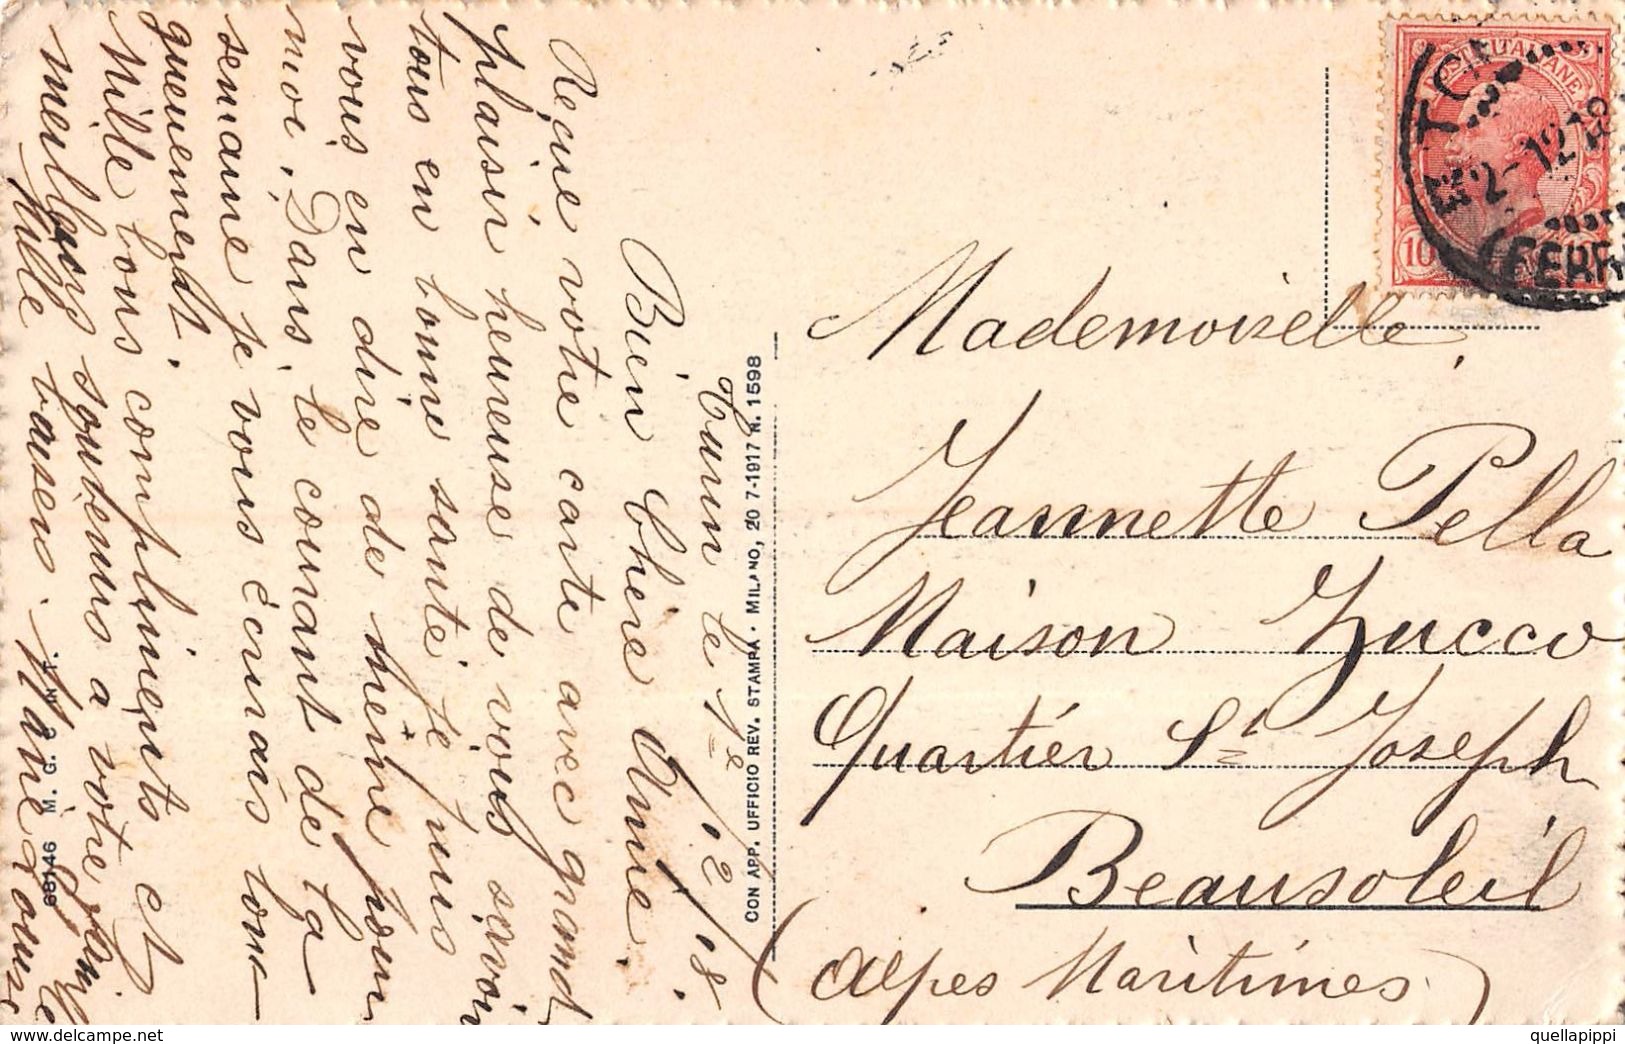 Turin le 1e/12/18.
Bien Chère Amie
Reçue votre carte avec grand
plaisir heureuse de vous savoir
tous en bonne santé je puis
vous en dire de même pour
moi. Dans le courant de la
semaine je vous écrirais lon-
guement.
Mille bons compliments et
meilleurs soubenirs a votre famille
Mille baisers.
CON APP. UFFICIO REV. STAMPA - MILANO, 20 7-1917 N. 1598
68146 M. G.
POSTE ITALIANE
10
2-12 18
(FERR
Mademoiselle,
Jeannette Pella
Maison Zucco
Quartier St Joseph
Beausoleil
(Alpes Maritimes)
delcampe.net
quellapippi